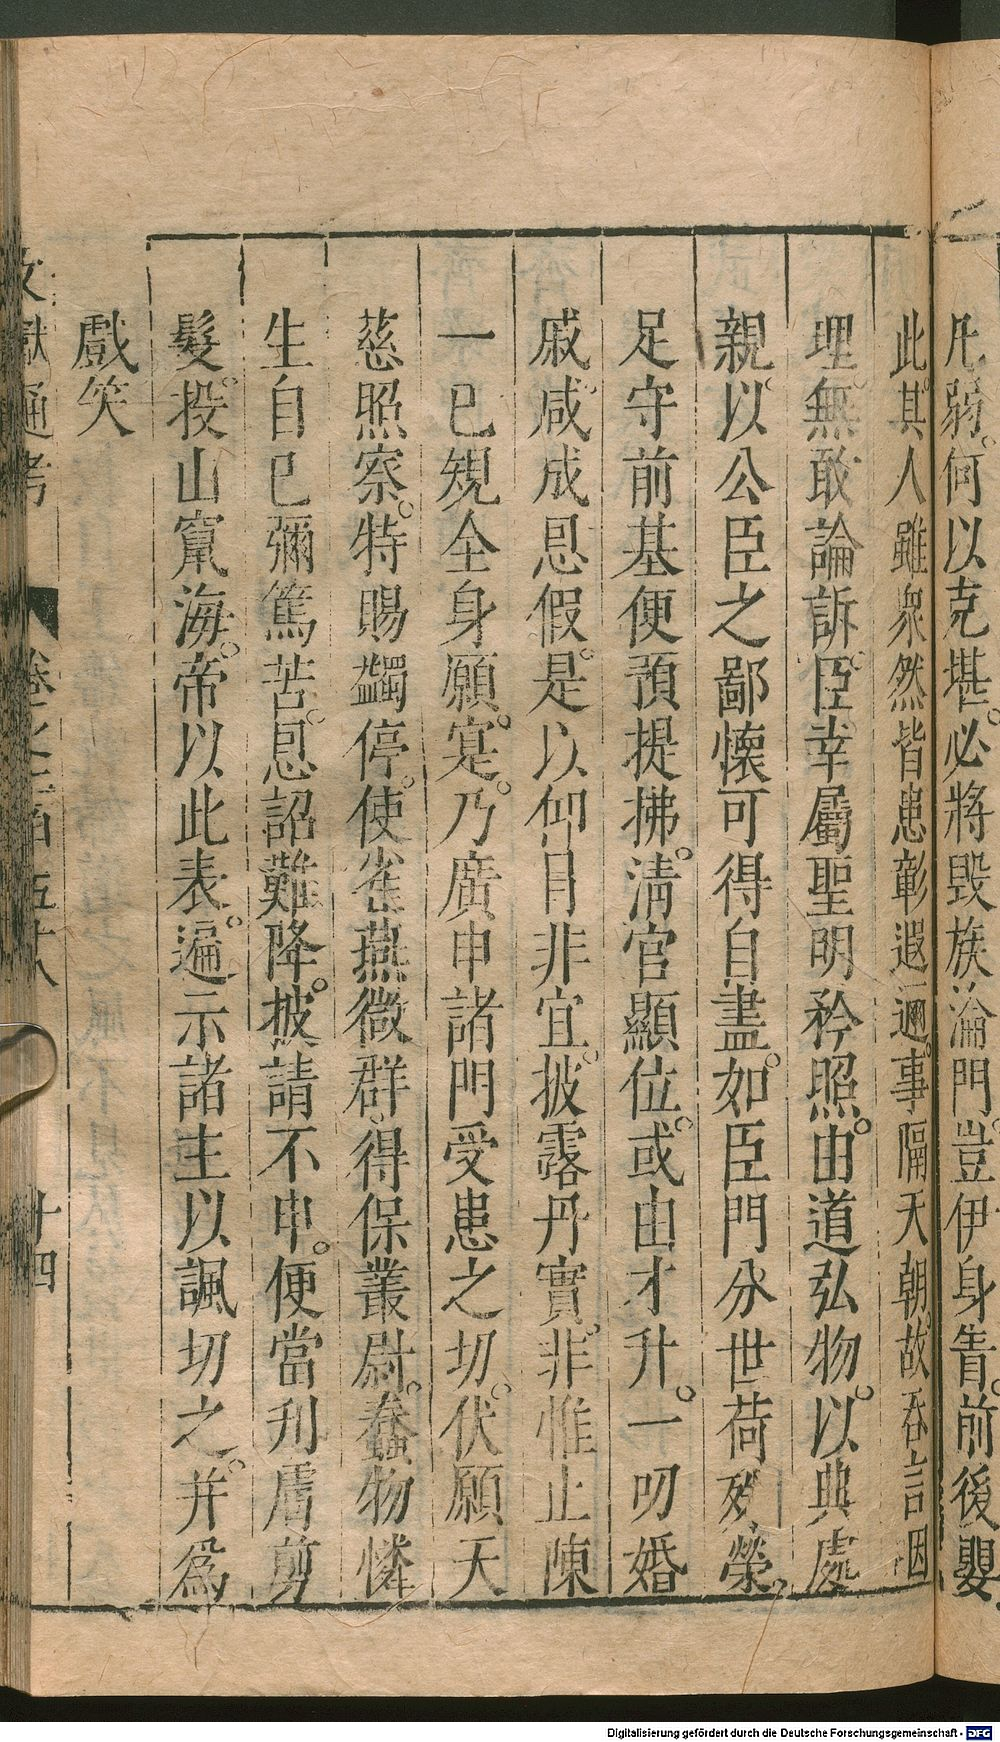 凡弱何以克堪必將毀族淪門豈伊身眚前後嬰
此其人雖衆然皆患彰遐邇事隔天朝故吞言咽
理無敢論訴臣幸屬聖明矜照由道弘物以典處
親以公臣之鄙懷可得自盡如臣門分世荷殊榮
足守前基便預提拂淸官顯位或由才升一叨婚
戚咸成恩假是以仰冒非宜披露丹實非惟止陳
一巳規全身願寔乃廣申諸門受患之切伏願天
慈照察特賜蠲停使雀燕微群得保叢尉蠢物憐
生自巳彌篤苦恩詔難降披請不申便當刋膚剪
髮投山竄海帝以此表遍示諸主以諷切之并爲
戲笑
文獻通考
卷之二百五十八
十四
Digitalisierung gefördert durch die Deutsche Forschungsgemeinschaft - DFG